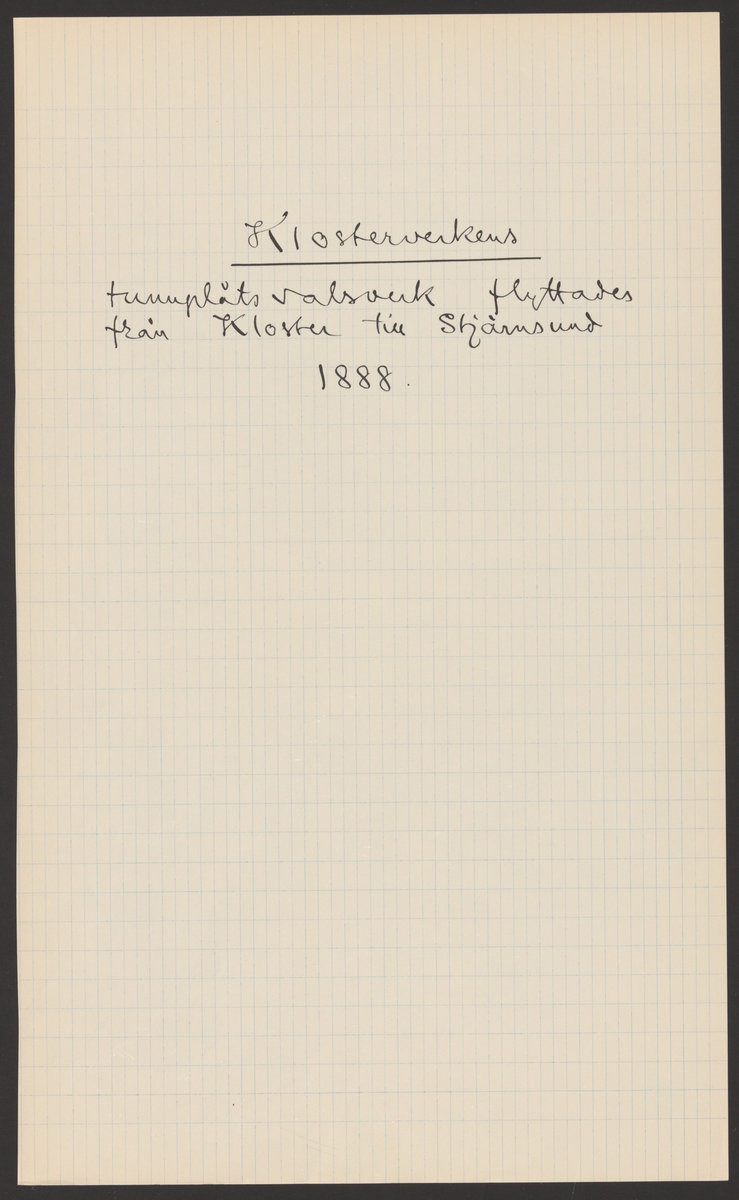 Klosterverkens
tunnplåtsvalsverk flyttades
från Kloster till Stjärnsund
1888.